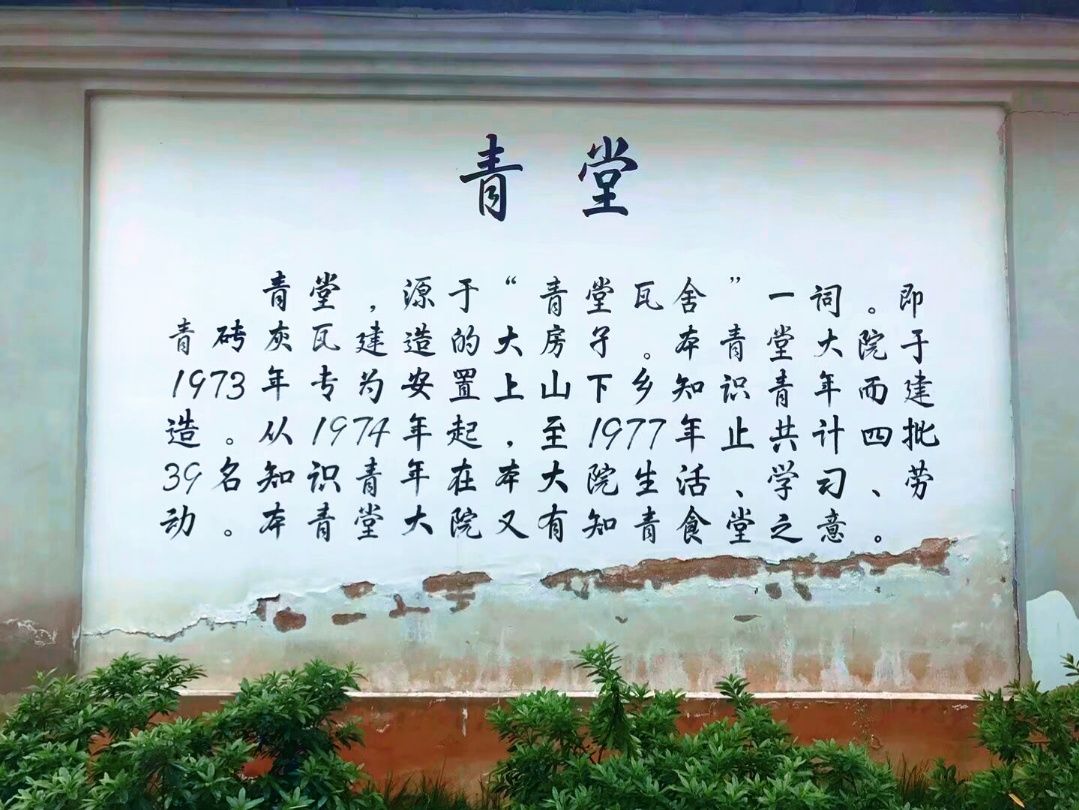 青堂
青堂，源于“青堂瓦舍”一词。即
青砖灰瓦建造的大房子。本青堂大院于
1973年专为安置上山下乡知识青年而建
造。从1974年起，至1977年止共计四批
39名知识青年在本大院生活、学习、劳
动。本青堂大院又有知青食堂之意。